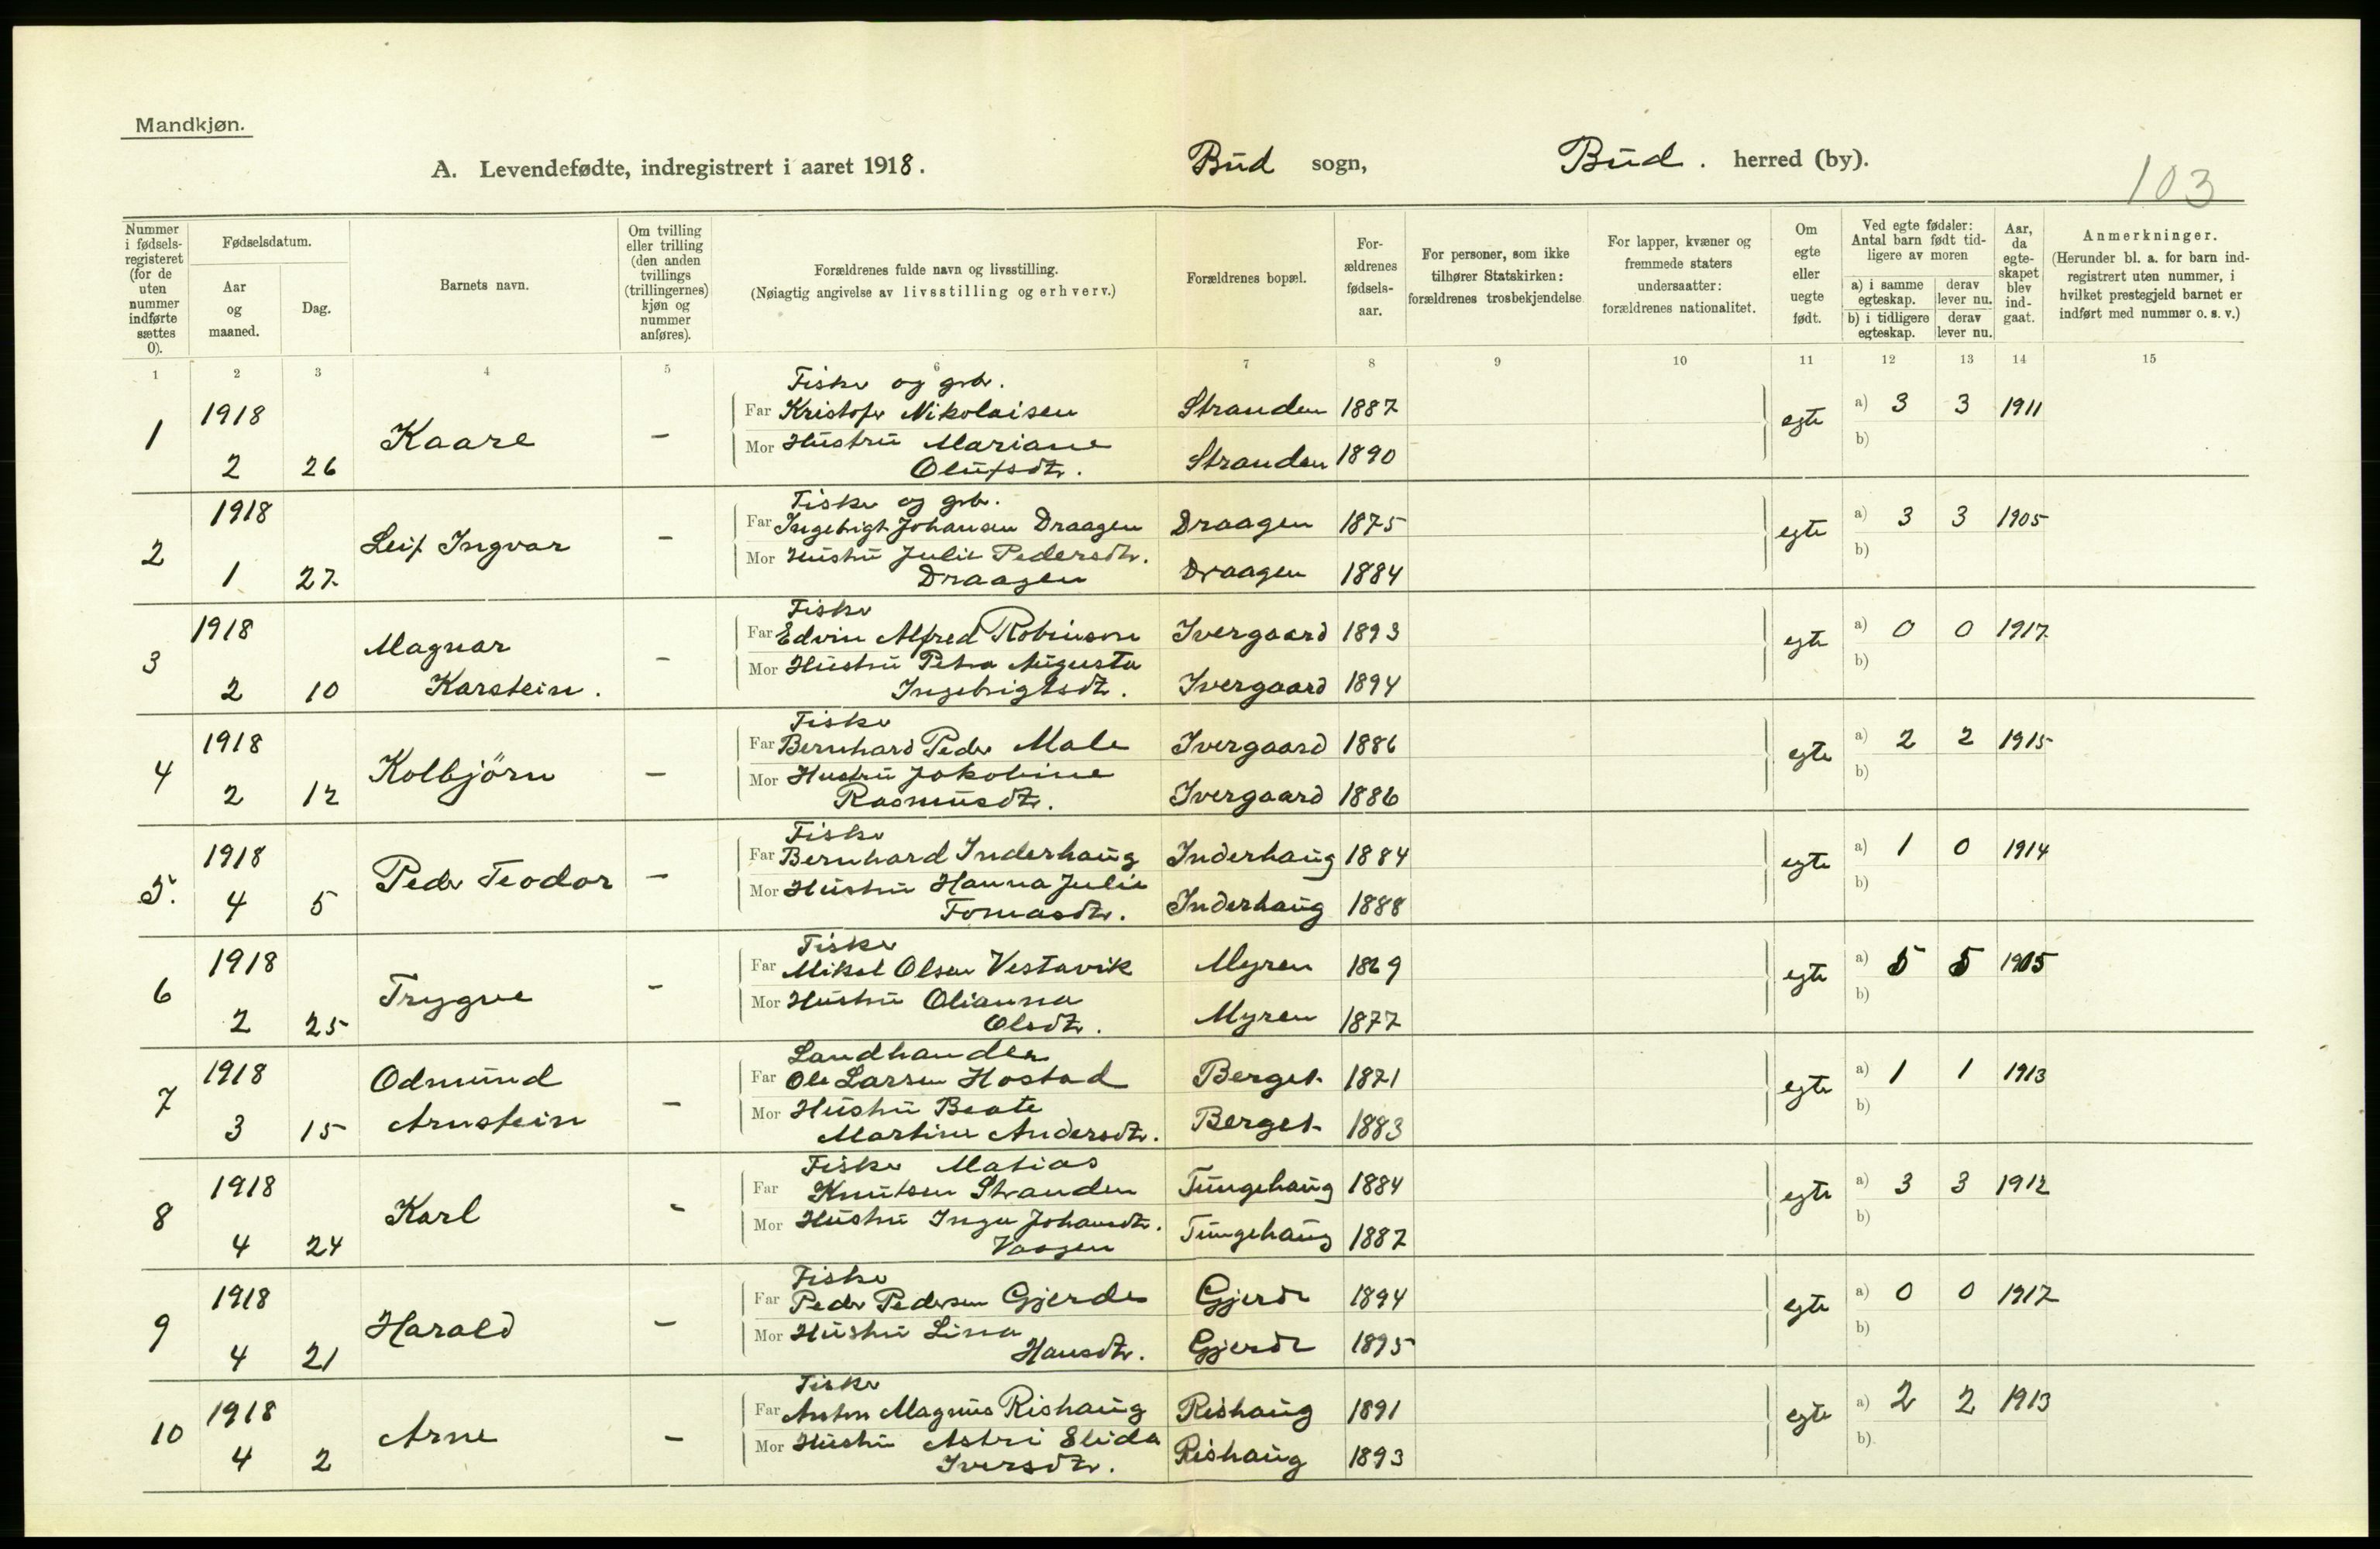 Mandkjøn.
A. Levendefødte, indregistrert i aaret 1918. Bŭd sogn, Bŭd. herred (by).
103
Nummer i fødsels-registeret (for de uten nummer indførte sættes 0).
Fødselsdatum.
Aar og maaned.
Dag.
Barnets navn.
Om tvilling eller trilling (den anden tvillings (trillingernes) kjøn og nummer anføres).
Forældrenes fulde navn og livsstilling.
(Nøiagtig angivelse av livsstilling og erhverv.)
Forældrenes bopæl.
For-ældrenes fødsels-aar.
For personer, som ikke tilhører Statskirken: forældrenes trosbekjendelse
For lapper, kvæner og fremmede staters undersaatter: forældrenes nationalitet.
Om egte eller uegte født.
Ved egte fødsler: Antal barn født tid-ligere av moren
a) i samme egteskap. derav lever nu.
b) i tidligere egteskap. derav lever nu.
Aar, da egte-skapet blev ind-gaat.
Anmerkninger.
(Herunder bl. a. for barn ind-registrert uten nummer, i hvilket prestegjeld barnet er indført med nummer o. s. v.)
1 2 3 4 5 6 7 8 9 10 11 12 13 14 15
Fisker og grb.
1 1918 Far Kristofer Nikolaisen Stranden 1887 egte a) 3 3 1911
Kaare – Mor Hŭstrŭ Mariane b)
2 26 Olŭfsdtr. Stranden 1890
Fisker og grb.
2 1918 Far Ingebrigt Johansen Draagen Draagen 1875 egte a) 3 3 1905
Leif Ingvar – Mor Hŭstrŭ Julie Pedersdtr. b)
1 27 Draagen Draagen 1884
Fisker
3 1918 Magnar Far Edvin Alfred Robinson Ivergaard 1893 egte a) 0 0 1917
– Mor Hŭstrŭ Petra Aŭgusta b)
2 10 Karstein. Ingebrigtsdtr. Ivergaard 1894
Fisker
4 1918 Far Bernhard Peder Male Ivergaard 1886 egte a) 2 2 1915
Kolbjörn – Mor Hustrŭ Jakobine b)
2 12 Rasmŭsdtr. Ivergaard 1886
Fisker
5. 1918 Far Bernhard Inderhaŭg Inderhaŭg 1884 egte a) 1 0 1914
Peder Teodor – Mor Hŭstrŭ Hanna Julie b)
4 5 Tomasdtr. Inderhaŭg 1888
Fisker
6 1918 Far Mikal Olsen Vestavik Myren 1869 egte a) 5 5 1905
Trygve – Mor Hŭstrŭ Olianna b)
2 25 Olsdtr. Myren 1877
Landhandler
7 1918 Odmŭnd Far Ole Larsen Hostad Berget 1871 egte a) 1 1 1913
– Mor Hŭstrŭ Beate b)
3 15 Arnstein Martine Andersdtr. Berget 1883
Fisker Matias
8 1918 Far Knŭtsen Stranden Tŭngehaŭg 1884 egte a) 3 3 1912
Karl – Mor Hŭstrŭ Inga Johansdtr. b)
4 24 Vaagen Tŭngehaŭg 1887
Fisker
9 1918 Far Peder Pedersen Gjerde Gjerde 1894 egte a) 0 0 1917
Harald – Mor Hŭstrŭ Lina b)
4 21 Hansdtr. Gjerde 1895
Fisker
10 1918 Far Anton Magnŭs Rishaŭg Rishaŭg 1891 egte a) 2 2 1913
Arne – Mor Hŭstrŭ Astri Elida b)
4 2 Iversdtr. Rishaŭg 1893